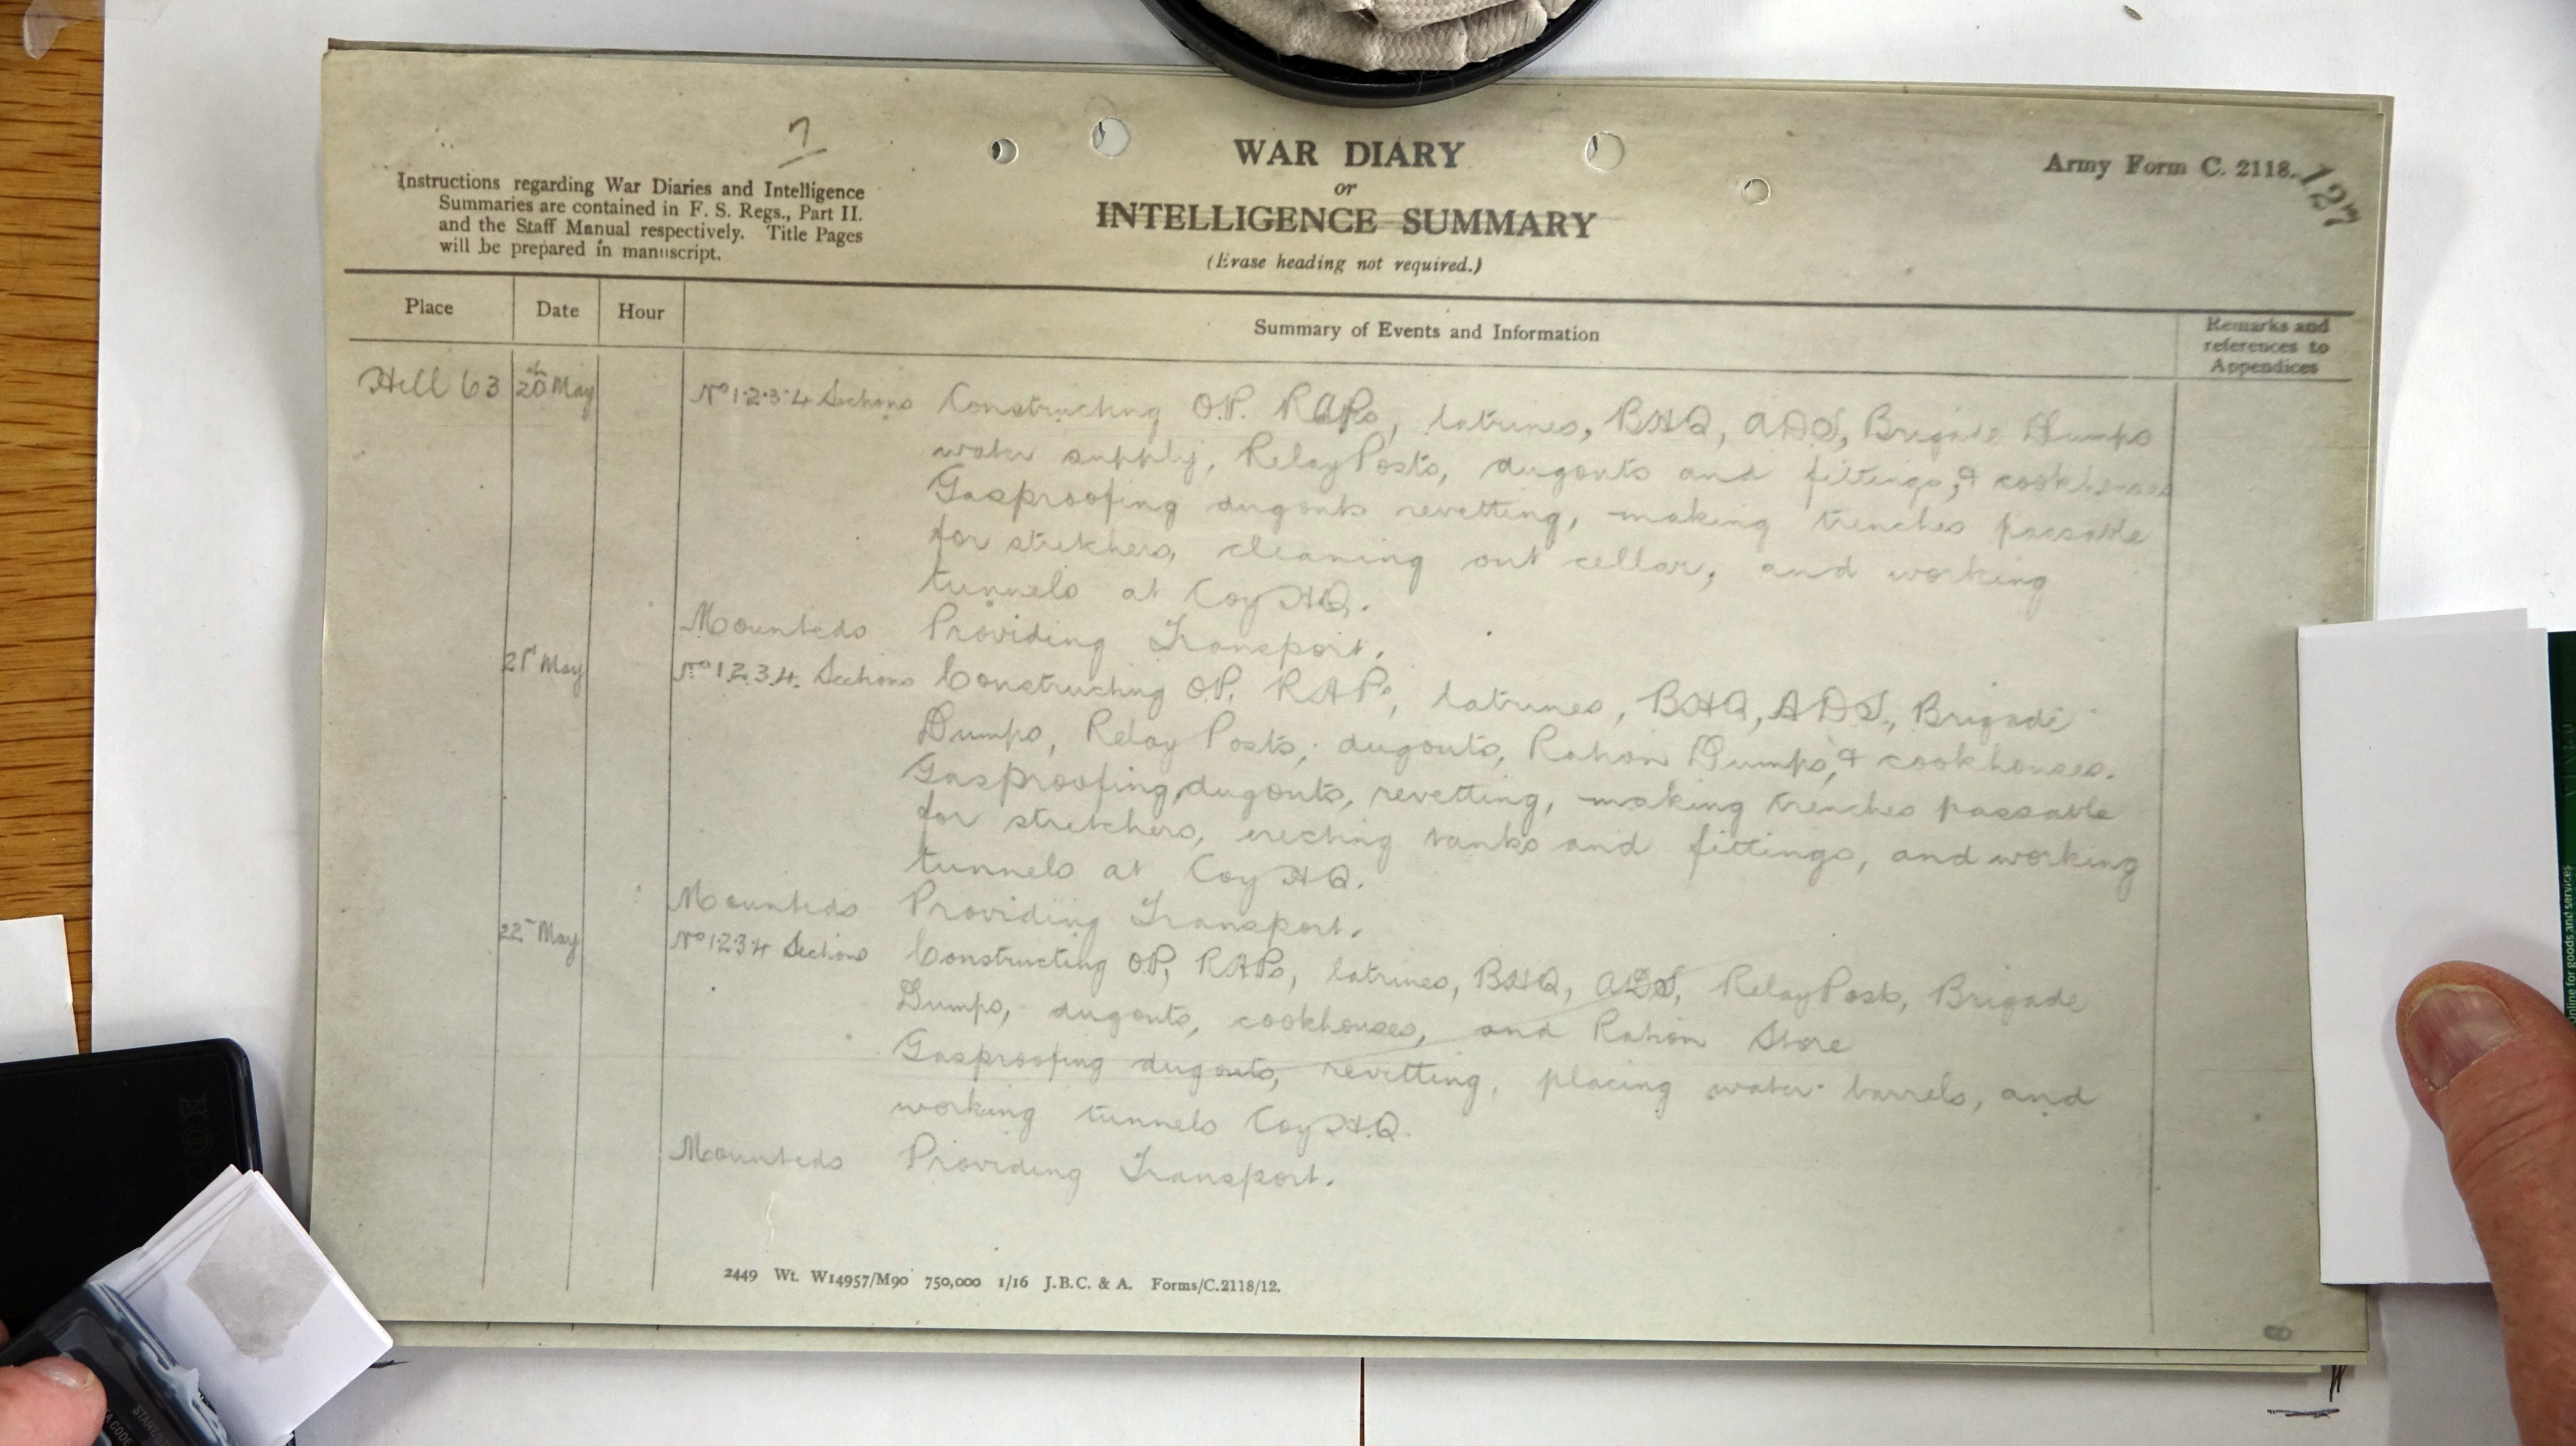 7
Instructions regarding War Diaries and Intelligence
Summaries are contained in F. S. Regs., Part II.
and the Staff Manual respectively. Title Pages
will be prepared in manuscript.
WAR DIARY
or
INTELLIGENCE SUMMARY
(Erase heading not required.)
Army Form C. 2118.
127
Place Date Hour Summary of Events and Information
Remarks and
references to
Appendices
Hill 63 20th May No 1.2.3.4 Sections Constructing O.P. RAPs, latrines, BHQ, ADS, Brigade Dumps
water supply, Relay Posts, dugouts and fittings, & cookhouses
Gasproofing dugouts revetting, making trenches passable
for stretchers, cleaning out cellar, and working
tunnels at Coy HQ.
Mounteds Providing Transport.
21st May No 1.2.3.4. Sections Constructing O.P. RAPs, latrines, BHQ, ADS, Brigade
Dumps, Relay Posts, dugouts, Ration Dumps, & cookhouses.
Gasproofing, dugouts, revetting, making trenches passable
for stretchers, erecting tanks and fittings, and working
tunnels at Coy HQ.
Mounteds Providing Transport.
22nd May No 1.2.3.4 Sections Constructing O.P, RAPs, latrines, BHQ, ADS, Relay Posts, Brigade
Dumps, dugouts, cookhouses, and Ration Store
Gasproofing dugouts, revetting, placing water barrels, and
working tunnels Coy H.Q.
Mounteds Providing Transport.
2449 Wt. W14957/M90 750,000 1/16 J.B.C. & A. Forms/C.2118/12.
online for goods and services